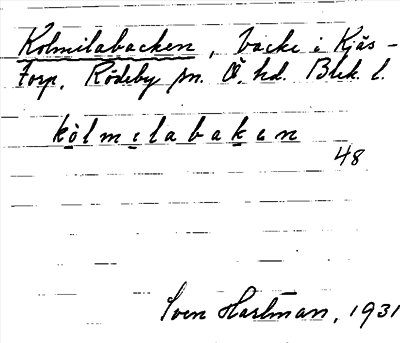 Kolmilabacken, backe i Kjäs-
torp, Rödeby sn. Ö. hd. Blek. l.
kòlmilabakɛn
48
Sven Hartman, 1931